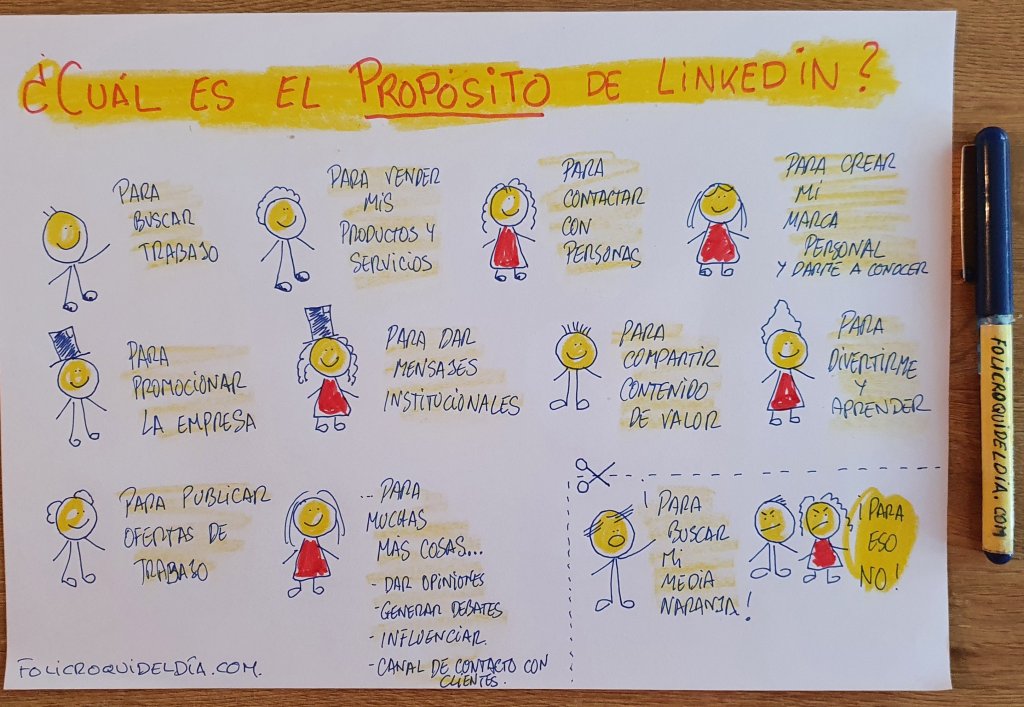 ¿CUÁL ES EL PROPÓSITO DE LINKEDIN?
PARA
BUSCAR
TRABAJO
PARA VENDER
MIS
PRODUCTOS Y
SERVICIOS
PARA
CONTACTAR
CON
PERSONAS
PARA CREAR
MI
MARCA
PERSONAL
Y DARTE A CONOCER
PARA
PROMOCIONAR
LA EMPRESA
PARA DAR
MENSAJES
INSTITUCIONALES
PARA
COMPARTIR
CONTENIDO
DE VALOR
PARA
DIVERTIRME
Y
APRENDER
PARA PUBLICAR
OFERTAS DE
TRABAJO
... PARA
MUCHAS
MÁS COSAS...
- DAR OPINIONES
- GENERAR DEBATES
- INFLUENCIAR.
- CANAL DE CONTACTO CON
CLIENTES.
¡PARA
BUSCAR
MI
MEDIA
NARANJA!
¡PARA
ESO
NO!
FOLICROQUIDELDÍA.COM.
FOLICROQUIDELDÍA.COM